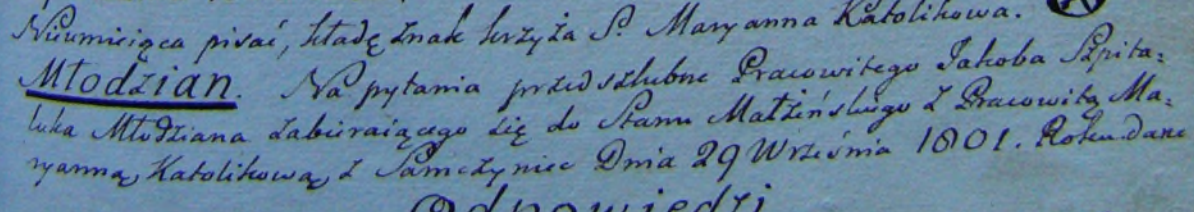 Nieumieiąca pisać, kładę znak krzyża S. Maryanna Katolikowa.
Młodzian. Na pytania przedszlubne Pracowitego Jakoba Szpita=
luka Młodziana zabieraiącego się do Stanu Małżeńskiego z Pracowitą Ma=
ryanną Katolikową z Samczyniec Dnia 29 Wrzésnia 1801. Roku. dane
Odpowiedzi